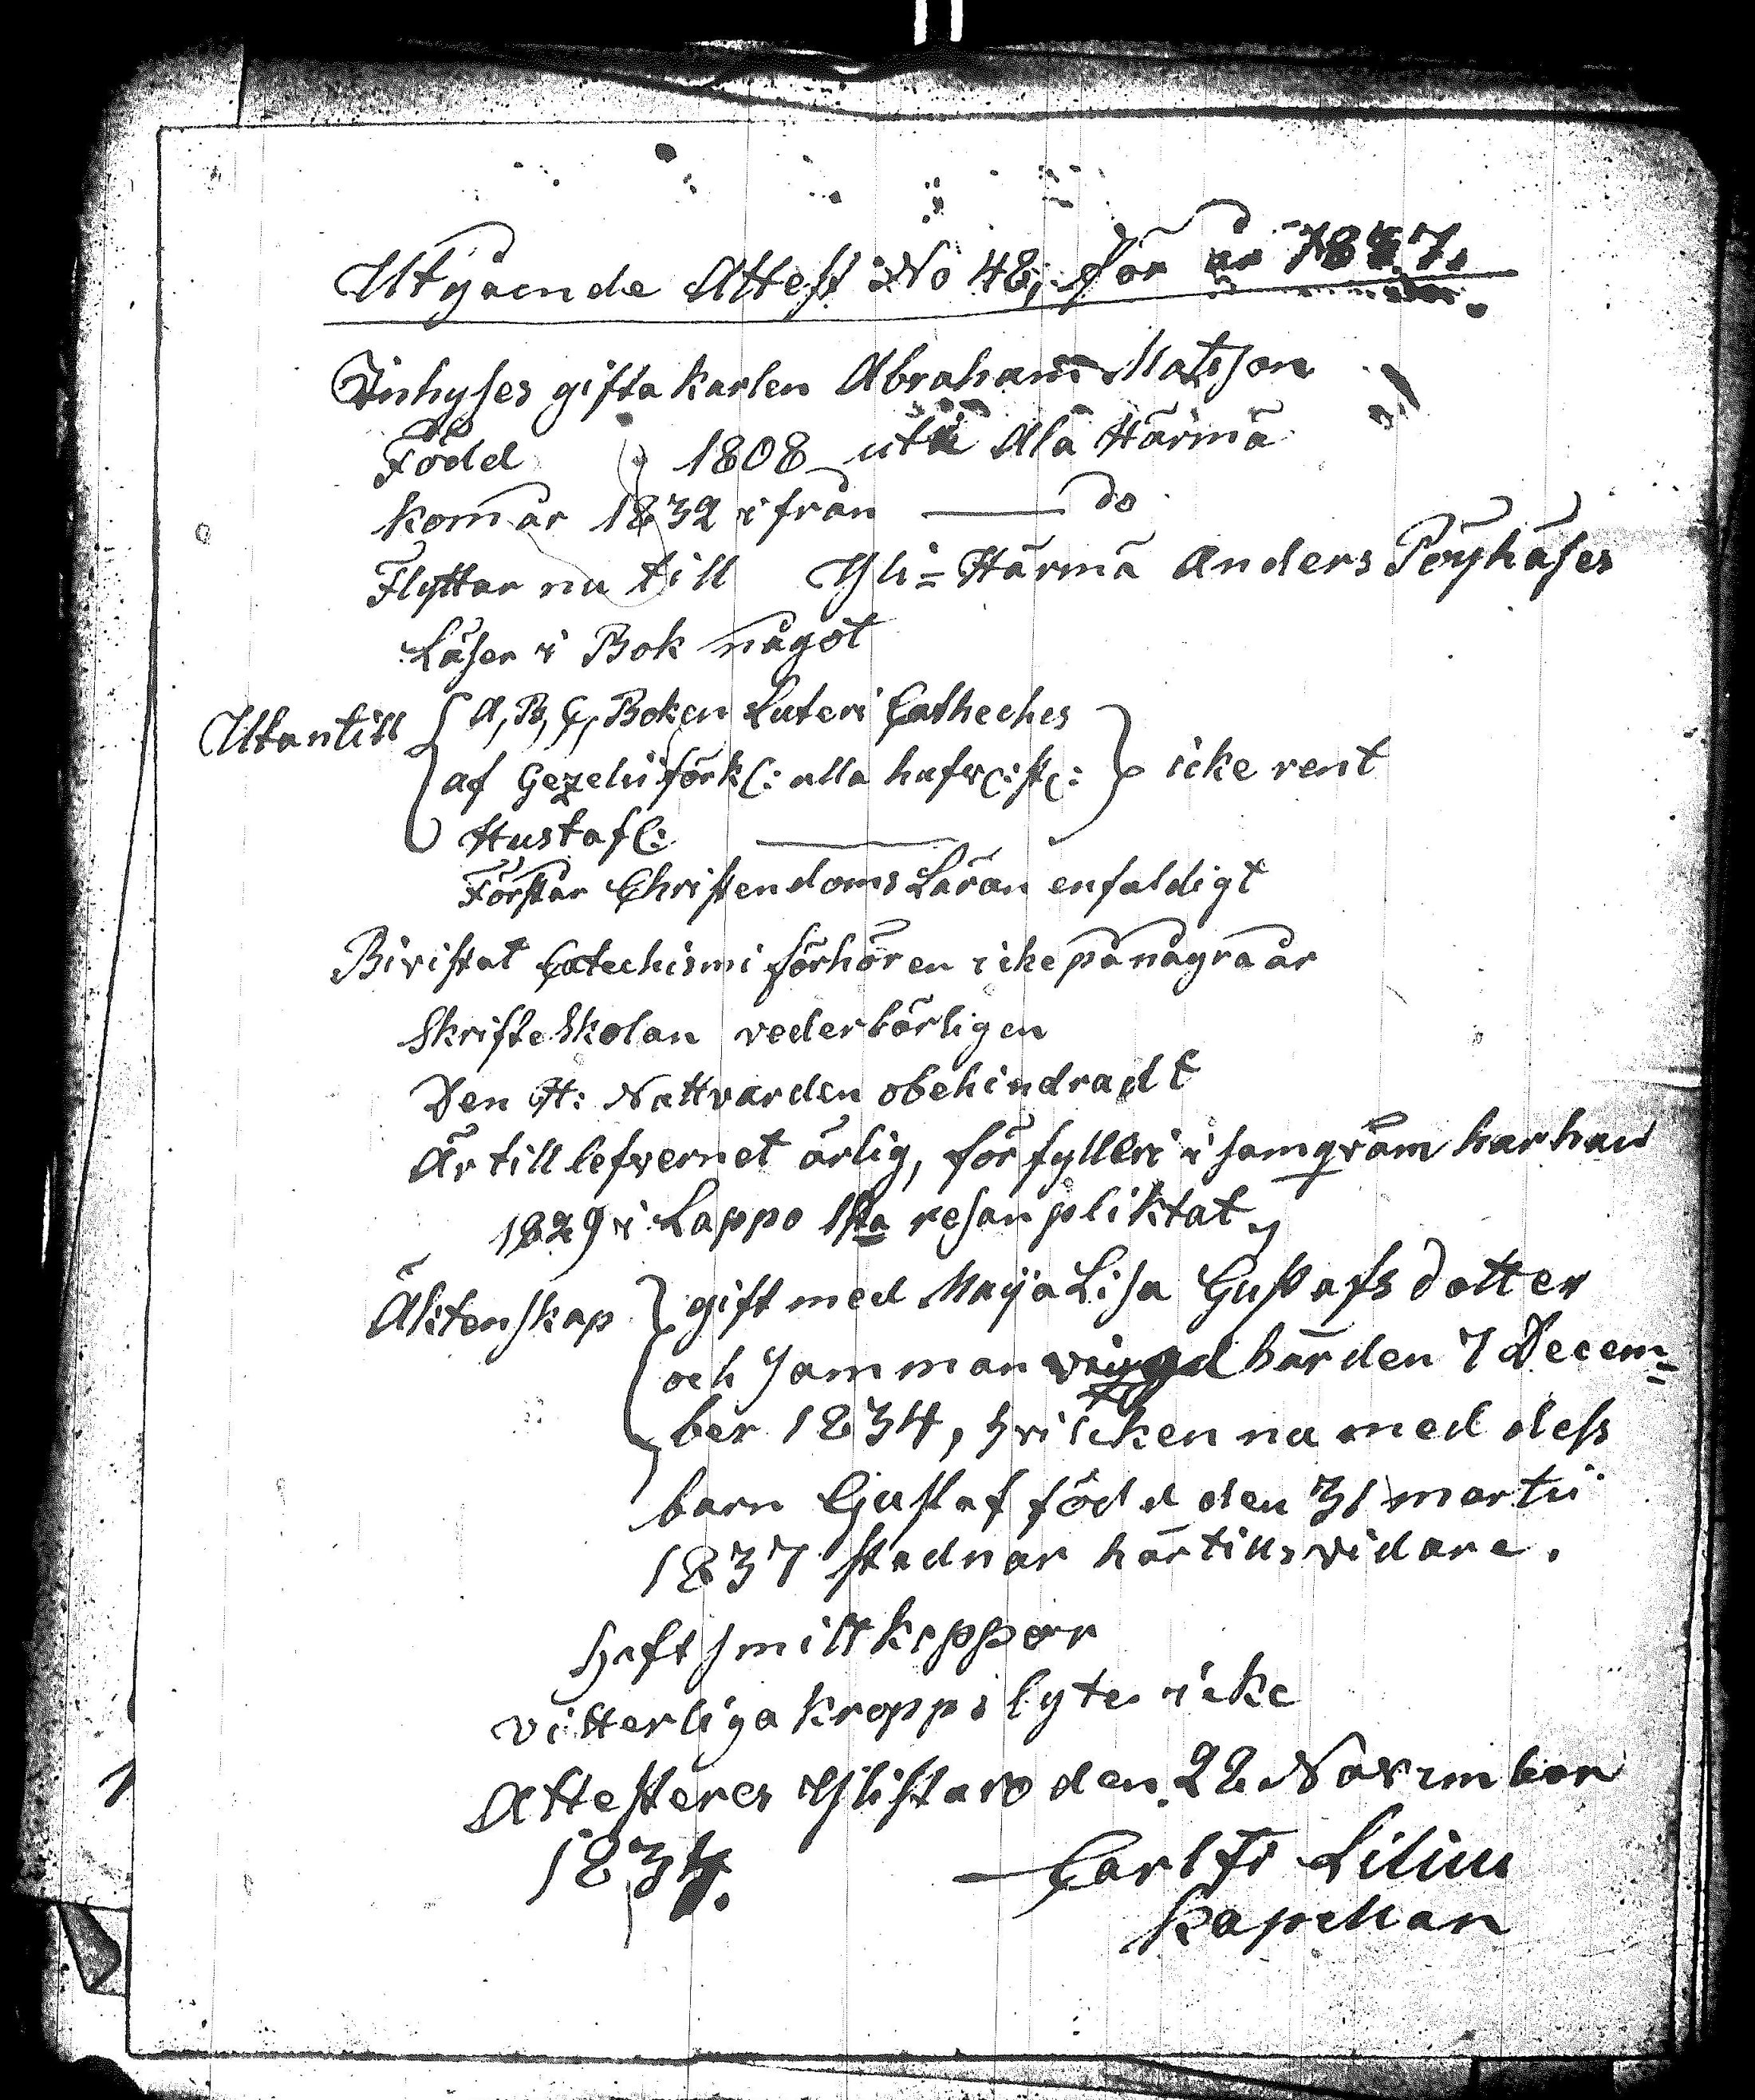 Utgående Attest No 48, för år 1837.
Inhyses gifta karlen Abraham Matsson
Född 1808 uti Ala Härmä
kom år 1832 ifrån —— do
Flyttar nu till Yli-Härmä Anders Pöyhäses
Läser i Bok något
Utantill { A, B, C, Boken Luteri Catheches
af Gezelii förkl: alla hufv:st: } icke rent
Hustafl: ——
Förstår Christendoms Läran enfaldigt
Bivistat Catechismi förhören icke på några år
Skrifte Skolan vederbörligen
Den H: Nattvarden obehindradt
Är till lefvernet ärlig, för fylleri i samqväm har han
1829 i Lappo 1sta resan pliktat,
Äktenskap { gift med Maija Lisa Gustafs dotter
och Samman vigd här den 7 Decem=
ber 1834, hvilcken nu med dess
barn Gustaf född den 31 martii
1837 stadnar här tills vidare.
Haft smittkoppor
vitterliga kroppslyte icke
Attesteres Ylistaro den 22 November
1837. — Carl Fr Lilius
Kapellan